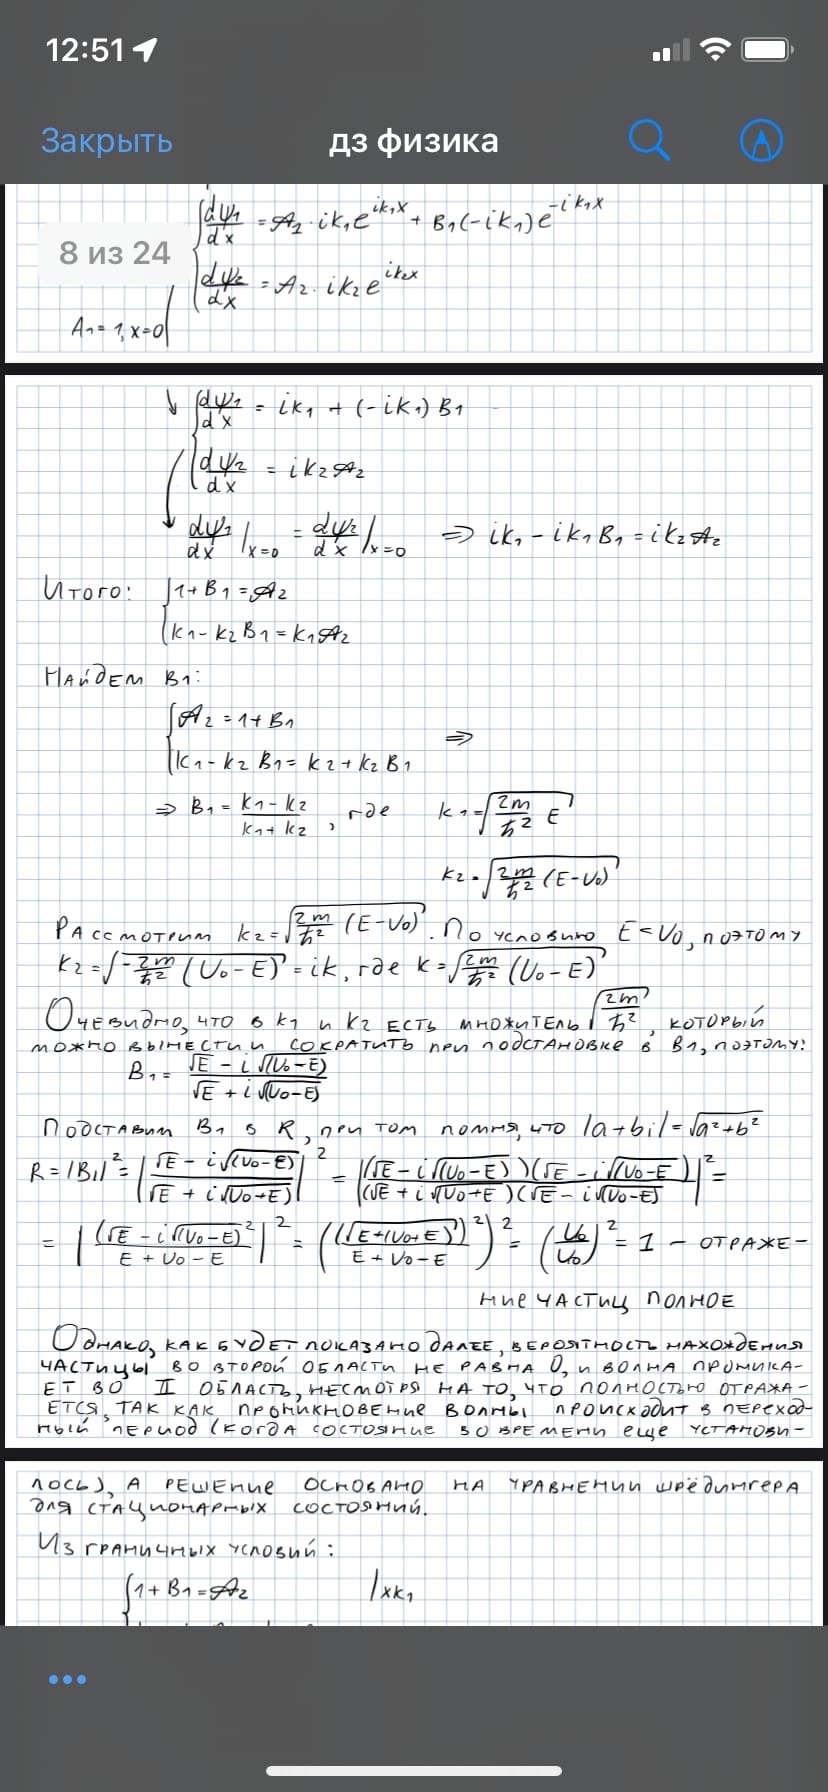 12:51
Закрыть
дз физика
8 из 24
dψ1/dx = A1 · ik1 e^{ik1x} + B1(-ik1)e^{-ik1x}
dψ2/dx = A2 · ik2 e^{ik2x}
A1 = 1, x=0
dψ1/dx = ik1 + (-ik1) B1
dψ2/dx = ik2 A2
dψ1/dx |x=0 = dψ2/dx |x=0 ⇒ ik1 - ik1 B1 = ik2 A2
Итого: 1 + B1 = A2
k1 - k2 B1 = k1 A2
Найдем B1:
A2 = 1 + B1
⇒
k1 - k2 B1 = k2 + k2 B1
⇒ B1 = (k1 - k2)/(k1 + k2), где k1 = √(2m/ħ² E)
k2 = √(2m/ħ² (E-U0))
Рассмотрим k2 = √(2m/ħ² (E-U0)). По условию E < U0, поэтому
k2 = √(-2m/ħ² (U0-E)) = ik, где k = √(2m/ħ² (U0-E))
Очевидно, что в k1 и k2 есть множитель √(2m/ħ²), который
можно вынести и сократить при подстановке в B1, поэтому:
B1 = (√E - i√(U0-E))/(√E + i√(U0-E))
Подставим B1 в R, при том помня, что |a+bi| = √(a²+b²)
R = |B1|² = |(√E - i√(U0-E))/(√E + i√(U0+E))|² = |((√E - i√(U0-E))(√E - i√(U0-E))/((√E + i√(U0+E))(√E - i√(U0-E))|² =
= |(√E - i√(U0-E)²/(E + U0 - E)|² = ((√(E+(U0+E))²)/(E + U0 - E))² = (U0/U0)² = 1 – отраже-
ние частиц полное
Однако, как будет показано далее, вероятность нахождения
частицы во второй области не равна 0, и волна проника-
ет во II область, несмотря на то, что полностью отража-
ется, так как проникновение волны происходит в переход-
ный период (когда состояние во времени еще установи-
лось), а решение основано на уравнении шрёдингера
для стационарных состояний.
Из граничных условий:
1 + B1 = A2 |xk1